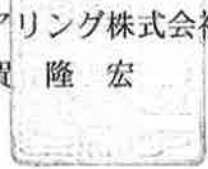 アリング株式会社
隆 宏